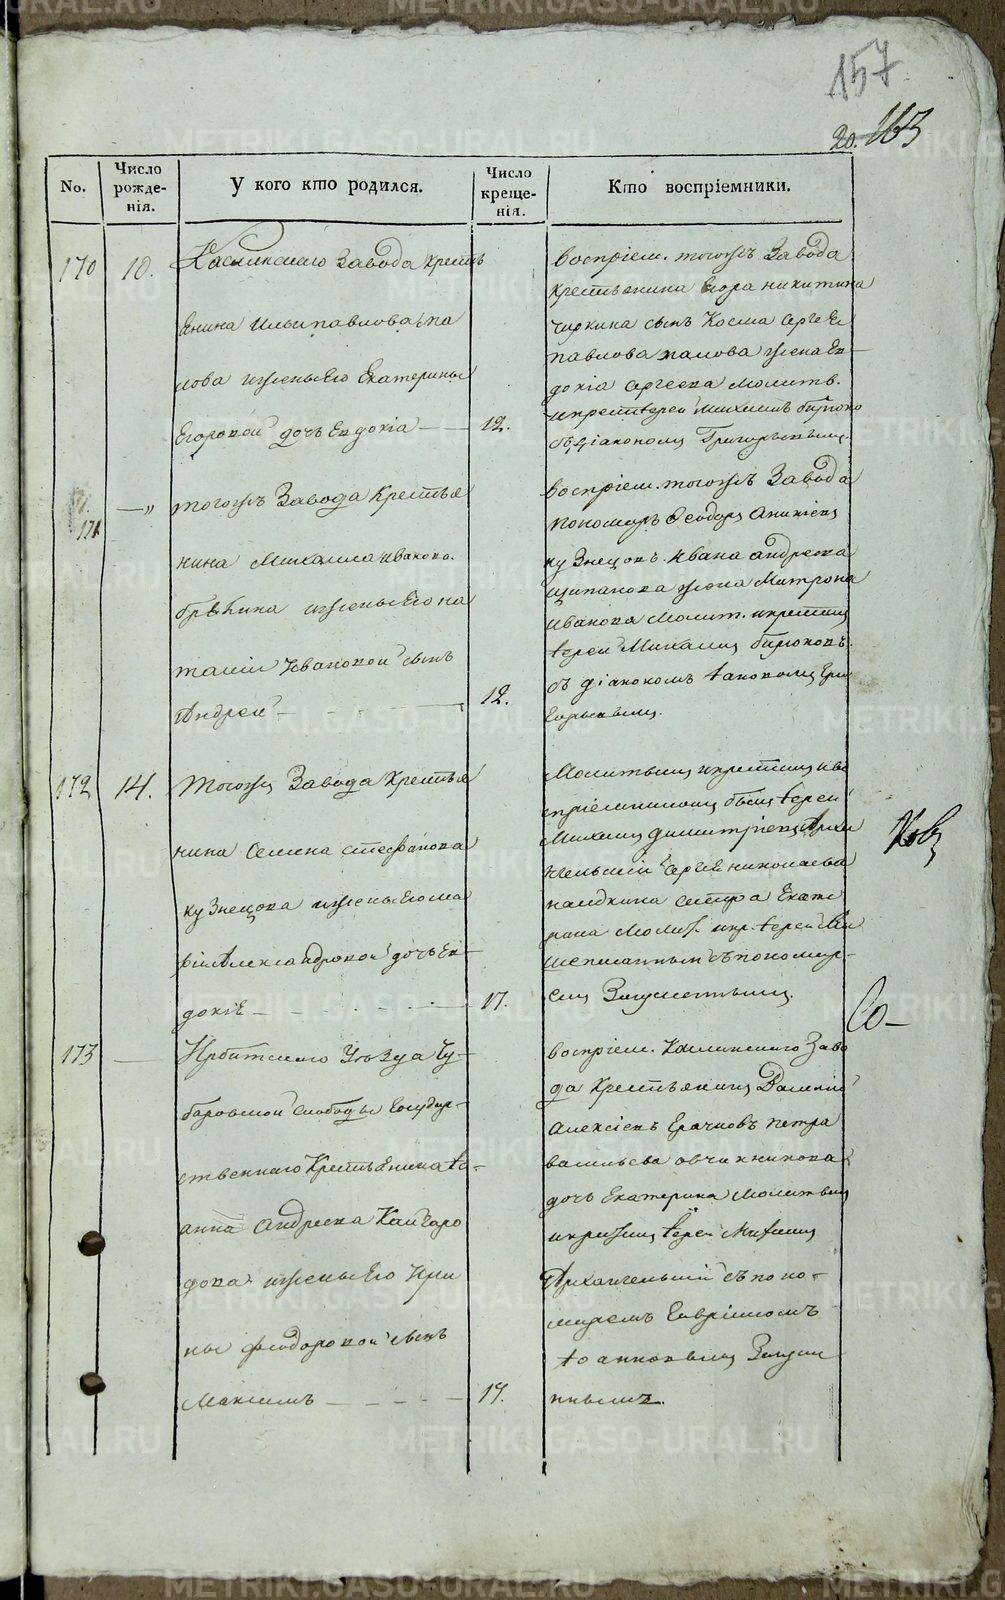 157
20. 163
No.
Число рожденія.
У кого кто родился.
Число крещенія.
Кто воспріемники.
170
10.
Каслинскаго Завода крестъ
янина Ильи павлова па
лова ижены его Екатерины
Егоровой дочь Евдокіа
12.
воспріем. тогожъ Завода
крестьянина Егора никитина
чиркина сынъ Косма Сергея
павлова палова жена Ев
докіа Сергеева Молитв.
икрест іерей Михаилъ бирюко
въ діакономъ Григорьевымъ.
171
—„
тогожъ Завода Крестья
нина Михаила Иванова.
ижены его на
таліи Ивановой сынъ
Андрей
12.
воспріем. тогожъ Завода
пономарь Феодоръ
кузнецовъ. Ивана андреева
жена Матрона
Иванова Молит. икрестилъ
іерей Михаилъ бирюковъ
съ діакономъ Iаковомъ Гри
горьевымъ.
172
14.
Тогожъ Завода Крестья
нина Семена стефанова
кузнецова ижены его ма
ріи Александровой дочь Ев
докіѣ
17.
Молитвилъ икрестилъ и во
спріемникомъ былъ іерей
Михаилъ Димитріевъ Арха
нгельскій Сергея николаева
наидкина сестра Екате
рина Молит. икр. іерей Вы
шеписанным съ пономар-
емъ
173
Ирбитскаго Уѣзда Чу-
баровской слободы Государ-
ственнаго Крестьянина Iо-
анна Андреева Кайгоро
дова ижены его Ири
ны феодоровой сынъ
Максимъ
17.
воспріем. Каслинскаго Заво
да Крестьянинъ Василій
Алексіевъ Ерачковъ петра
васильева овчинникова
дочь Екатерина Молитвилъ
икрестилъ іерей Михаилъ
Архангельскій съ поно-
маремъ Гавріиломъ
Iоанновымъ
METRIKI.GASO-URAL.RU